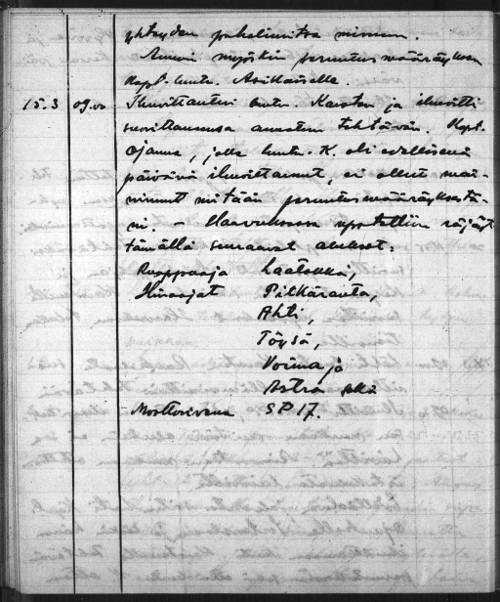 yhteyden puhelimitse minuun.
Annoin myöskin peruutusmääräyksen
Kapt. luutn. Asikaiselle.
15.3 09.00 Ilmoittautui luutn. Karsten ja ilmoitti
suorittaneensa annetun tehtävän. Kapt.
Ojanne, jolle luutn. K. oli edellisenä
päivänä ilmoittanut, ei ollut mai-
ninnut mitään peruutusmääräyksestä-
ni. – upotettiin räjäyt
tämällä seuraavat alukset:
Ruoppaaja Laatokka,
Hinaajat Pitkäranta,
Ahti,
Töysä,
Voima ja
Astra sekä
Moottorivene SP 17.